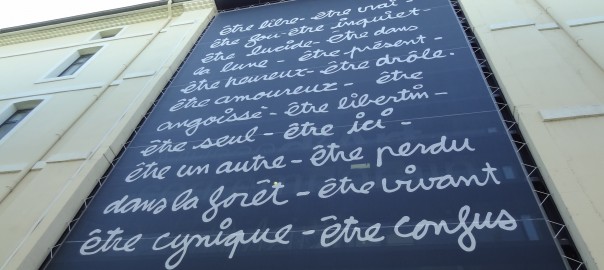 être libre - être vrai -
être fou - être inquiet -
être lucide - être dans
la lune - être présent -
être heureux - être drôle -
être amoureux - être
angoissé - être libertin -
être seul - être ici -
être un autre - être perdu
dans la forêt - être vivant
être cynique - être confus